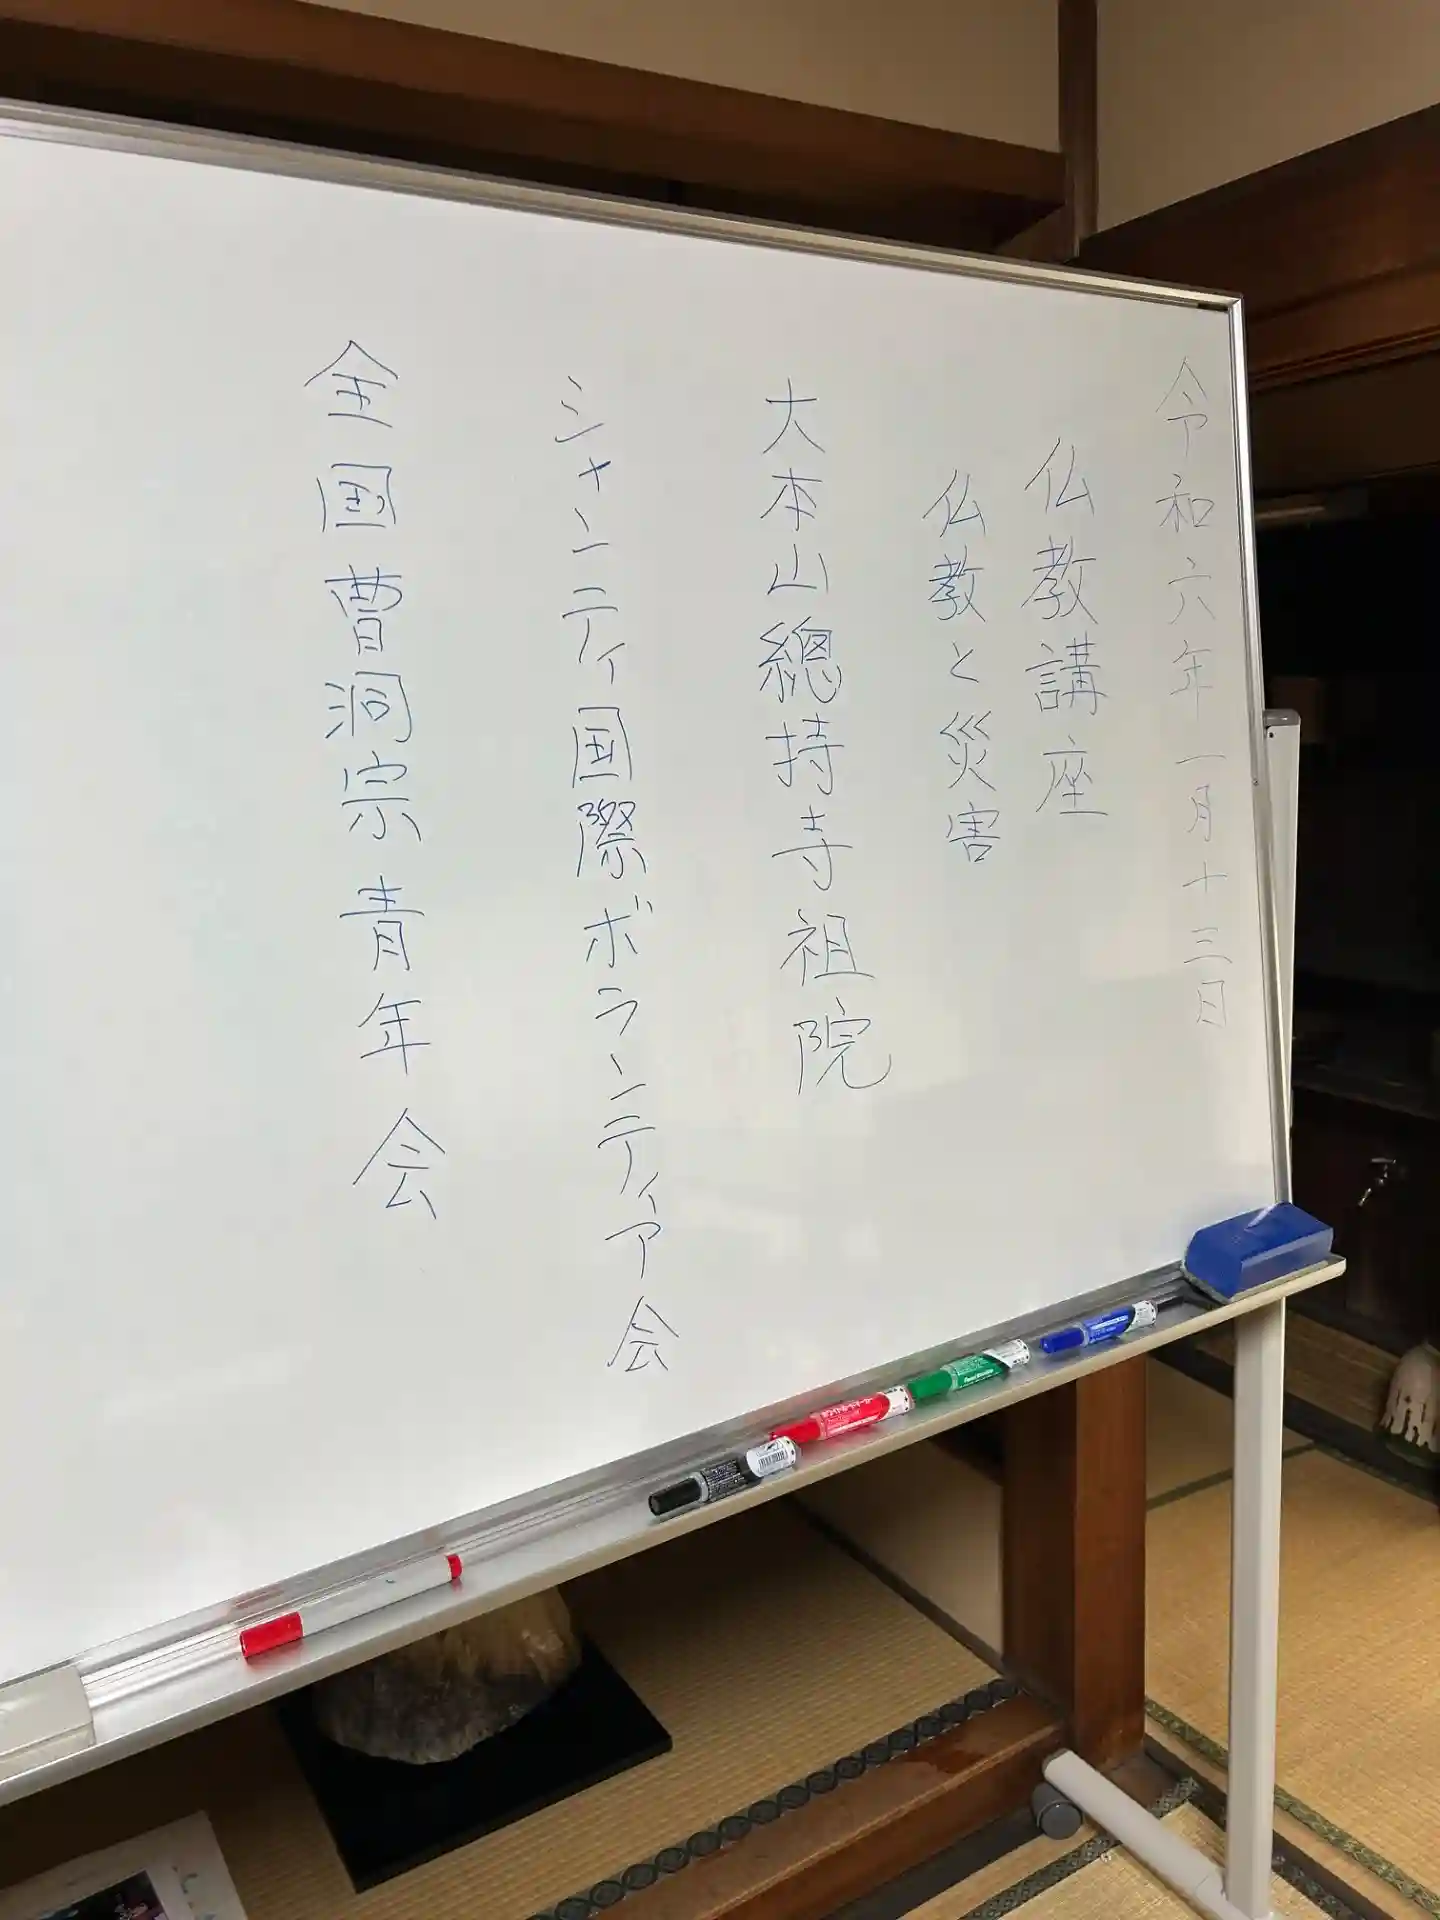 令和六年一月十三日
仏教講座
仏教と災害
大本山總持寺祖院
シャンティ国際ボランティア会
全国曹洞宗青年会